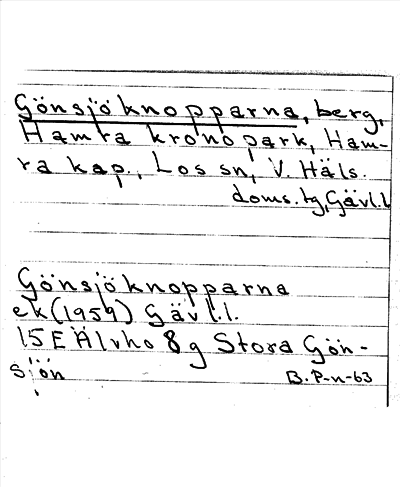 Gönsjöknopparna, berg,
Hamra kronopark, Ham-
ra kap., Los sn, V. Häls.
doms. tg, Gävl.l
Gönsjöknopparna
ek (1959) Gävl.l.
15E Älvho 8g Stora Gön-
sjön
B. P-n-63